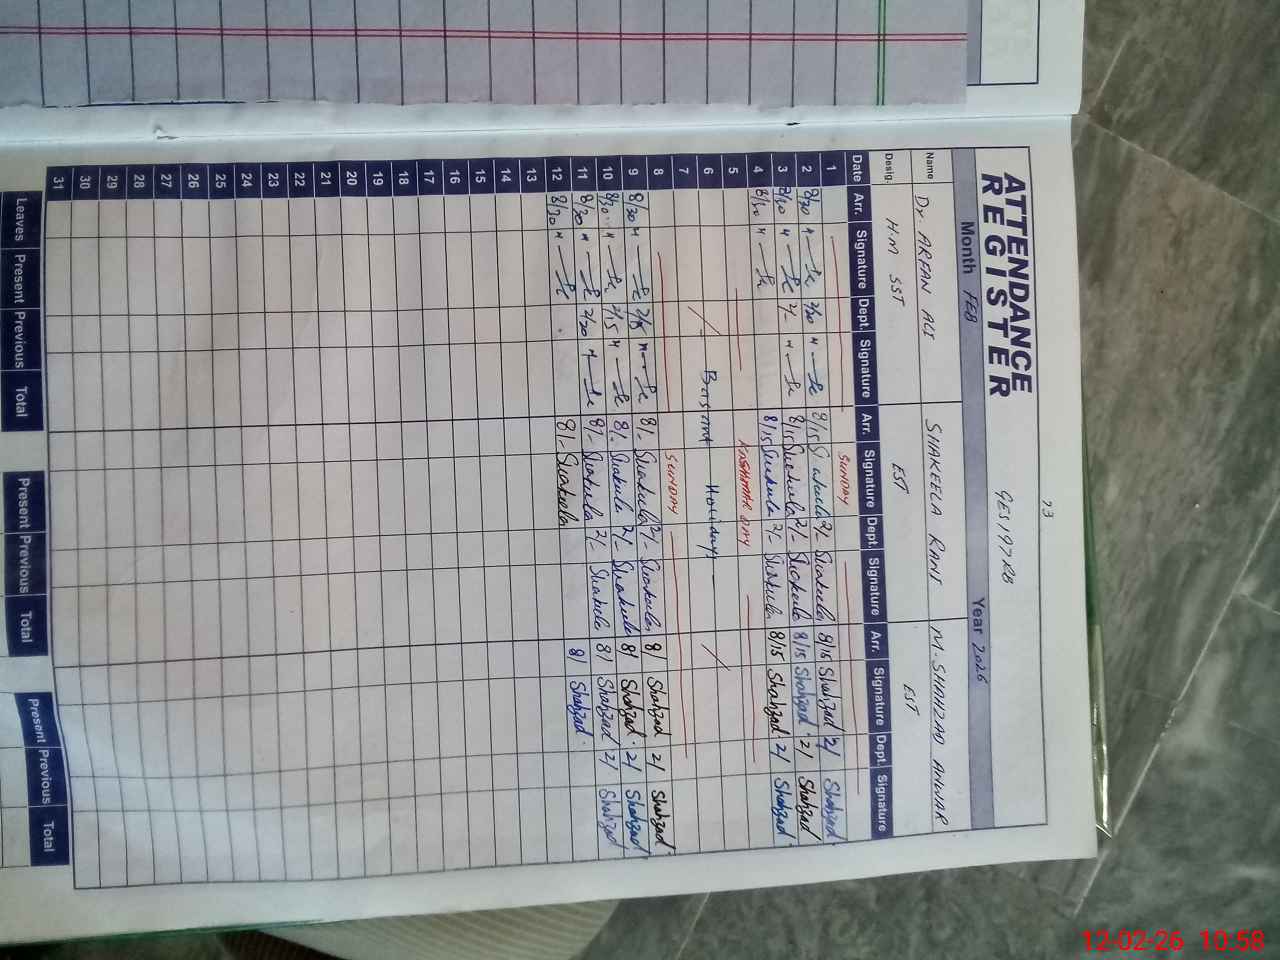 73
ATTENDANCE REGISTER
GES 197RB
Month FEB Year 2026
Name Dr. ARFAN ALI SHAKEELA RANI M. SHAHZAD ANWAR
Desig. H.M SST EST EST
Date Arr. Signature Dept. Signature Arr. Signature Dept. Signature Arr. Signature Dept. Signature
1 SUNDAY
2 8/30 2/30 8/15 Shakeela 2/- Shakeela 8/15 Shahzad 2/ Shahzad
3 2/- 8/15 Shakeela 2/- Shakeela 8/15 Shahzad 2/ Shahzad
4 8/15 Shakeela 2/- Shakeela 8/15 Shahzad 2/ Shahzad
5 KASHMIR DAY
6 Basant Holidays
7
8 SUNDAY
9 8/30 2/15 8/- Shakeela 2/- Shakeela 8/ Shahzad 2/ Shahzad
10 8/30 2/15 8/- Shakeela 2/- Shakeela 8/ Shahzad 2/ Shahzad
11 8/30 2/30 8/- Shakeela 2/- Shakeela 8/ Shahzad 2/ Shahzad
12 8/30 8/- Shakeela 8/ Shahzad
13
14
15
16
17
18
19
20
21
22
23
24
25
26
27
28
29
30
31
Leaves Present Previous Total Present Previous Total Present Previous Total
12-02-26 10:58